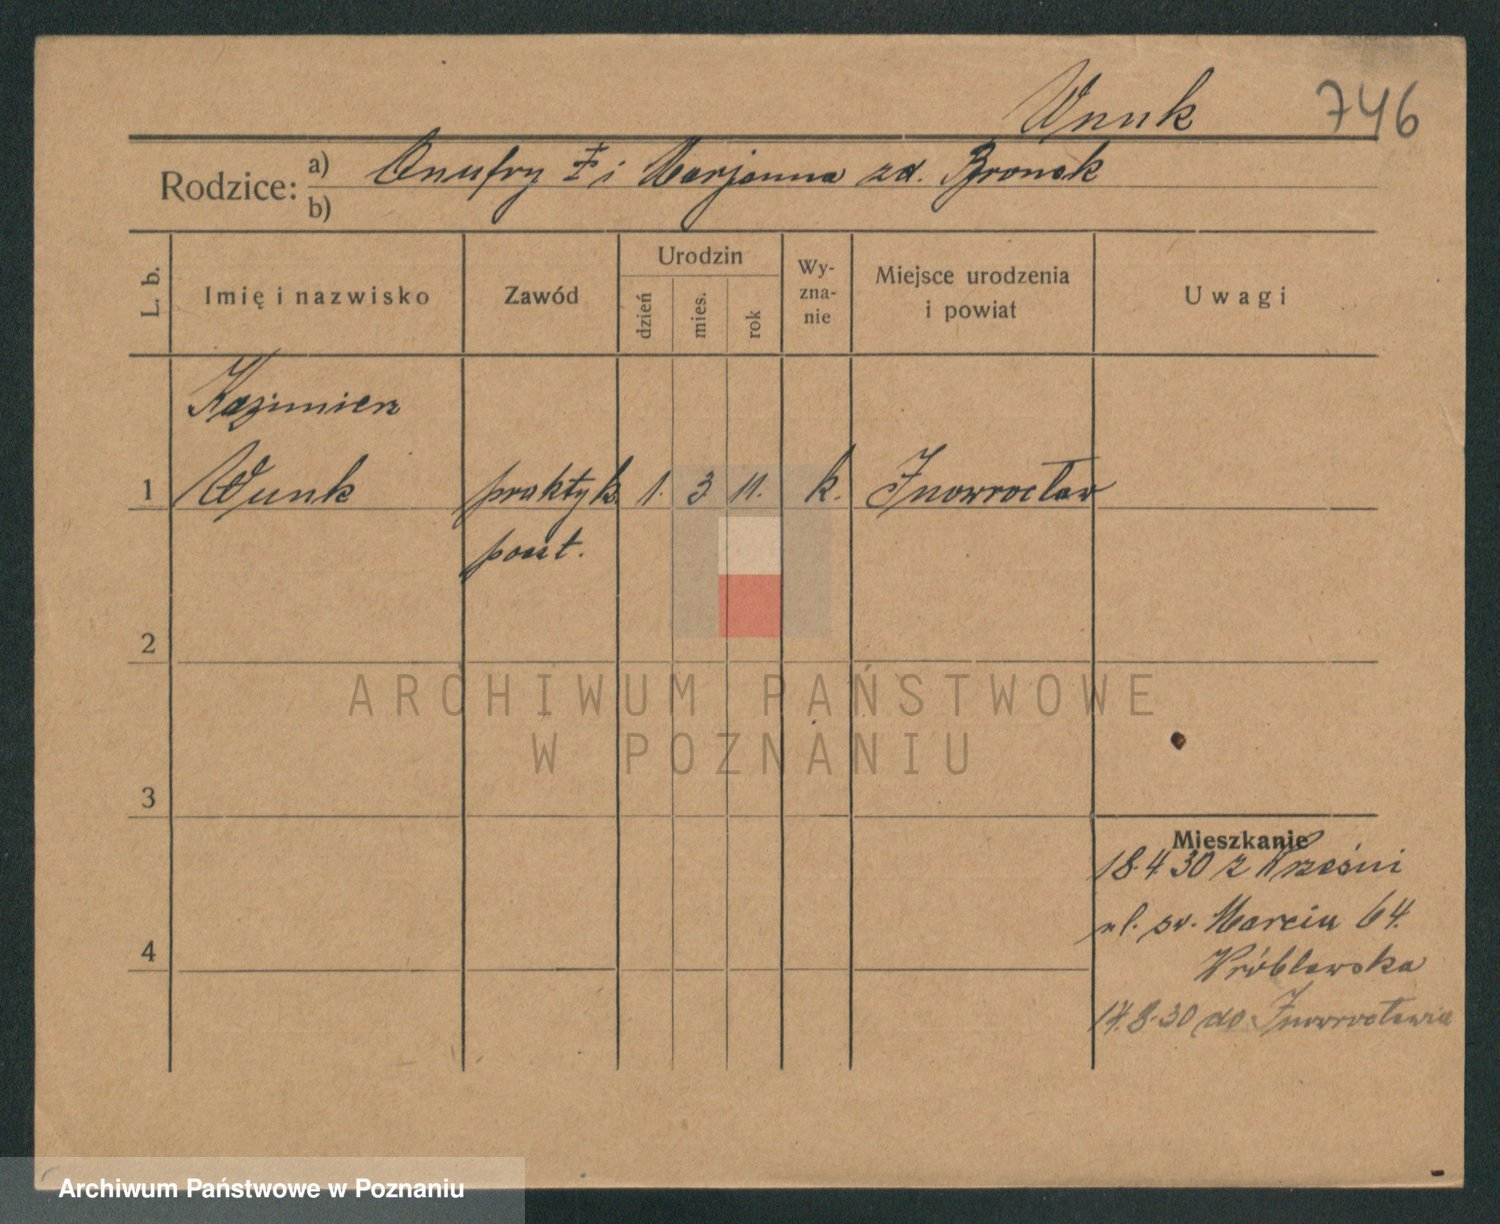 Wnuk 746
Rodzice: a) Onufry ‡ i Marjanna zd. Bronek
b)
L. b. Imię i nazwisko Zawód Urodzin dzień mies. rok Wyznanie Miejsce urodzenia i powiat Uwagi
Kazimierz
1 Wnuk praktyk. 1. 3 11. k. Inowrocław
poczt.
2
ARCHIWUM PAŃSTWOWE
W POZNANIU
3
Mieszkanie
18.4 30 z Wrześni
ul. św. Marcin 64.
4 Wróblewska
17.8.30 do Inowrocławia
Archiwum Państwowe w Poznaniu